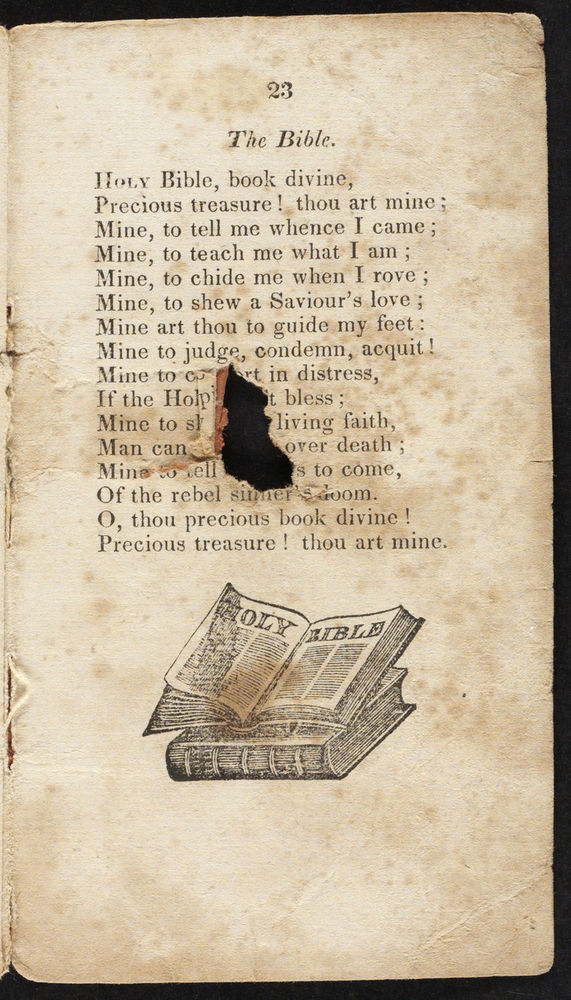 23
The Bible.
HOLY Bible, book divine,
Precious treasure! thou art mine;
Mine, to tell me whence I came;
Mine, to teach me what I am;
Mine, to chide me when I rove;
Mine, to shew a Saviour's love;
Mine art thou to guide my feet:
Mine to judge, condemn, acquit!
Mine to in distress,
If the bless;
Mine to living faith,
Man can over death;
Mine to tell to come,
Of the rebel sinner's doom.
O, thou precious book divine!
Precious treasure! thou art mine.
HOLY BIBLE